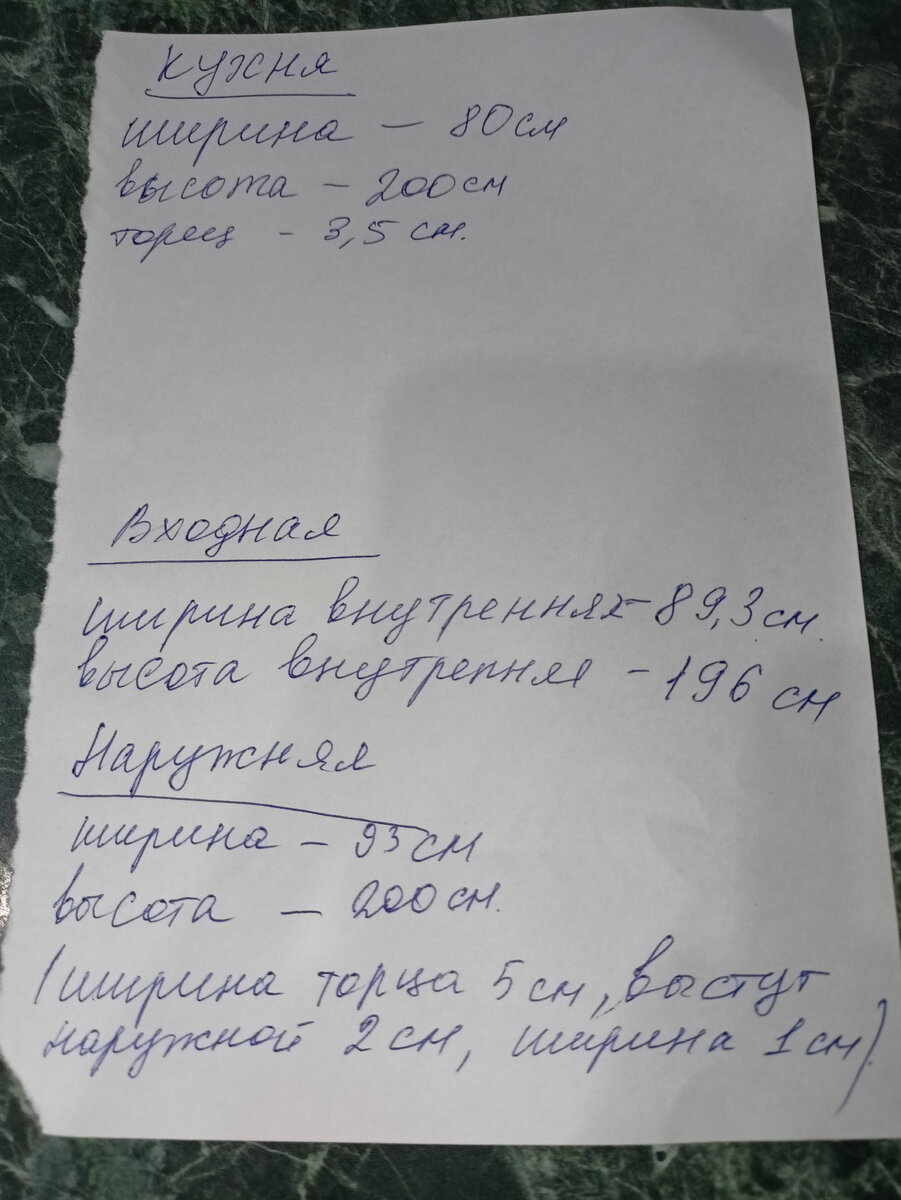 Кухня
ширина – 80 см
высота – 200 см
торец – 3,5 см.
Входная
ширина внутренняя – 89,3 см.
высота внутренняя – 196 см
Наружняя
ширина – 93 см
высота – 200 см.
(ширина торца 5 см, выступ
наружной 2 см, ширина 1 см).